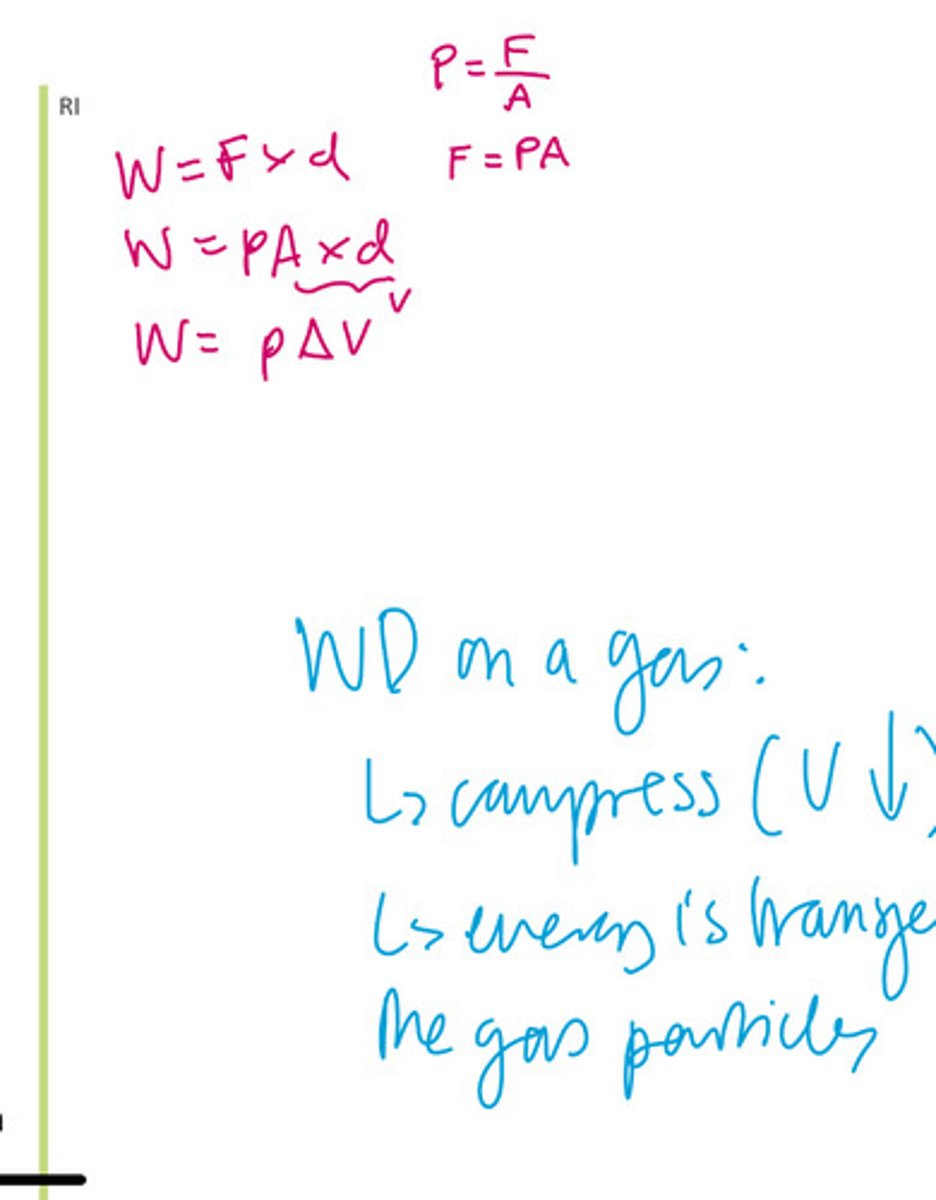 P = F/A
RI
W = F × d
F = PA
W = pA × d
V
W = pΔV
WD on a gas:
↳ compress (V ↓)
↳ energy is
the gas particles